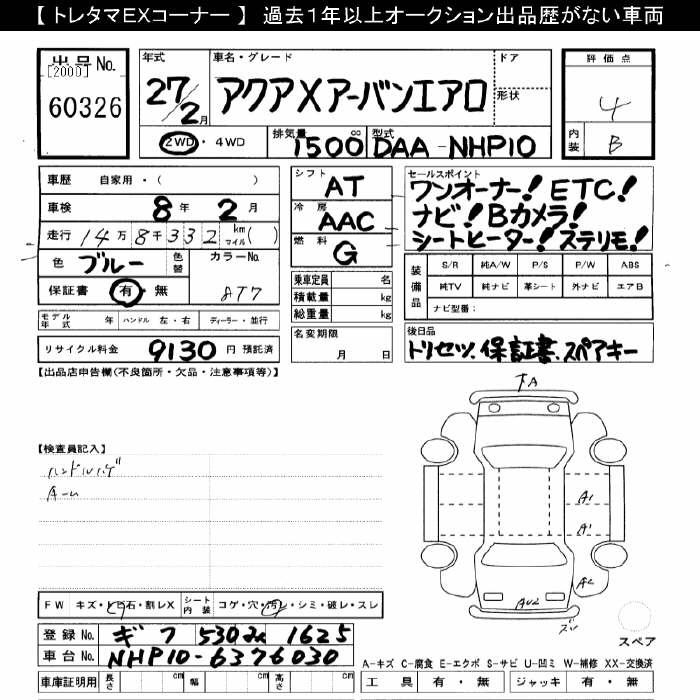 【 トレタマEXコーナー 】 過去1年以上オークション出品歴がない車両
出品No.
[2000]
60326
年式
27/2月
車名・グレード
アクアXアーバンエアロ
ドア
形状
2WD・4WD
排気量 cc
1500
型式
DAA-NHP10
評価点
4
内装
B
車歴 自家用・( )
車検 8年 2月
走行 14万8千332 km マイル( )
色 ブルー
色替
カラーNo.
8T7
保証書 有・無
モデル年式 年 ハンドル 左・右 ディーラー・並行
リサイクル料金 9130 円 預託済
シフト
AT
冷房
AAC
燃料
G
乗車定員 名
積載量 kg
総重量 kg
名変期限
月 日
セールスポイント
ワンオーナー! ETC!
ナビ! Bカメラ!
シートヒーター! ステリモ!
装備品
S/R 純A/W P/S P/W ABS
純TV 純ナビ 革シート 外ナビ エアB
ナビ型番:
後日品
トリセツ、保証書、スペアキー
【出品店申告欄(不良箇所・欠品・注意事項等)】
【検査員記入】
ハンドルハゲ
Aーム
A
A1
A1
A2
AU2
スペア
FW キズ・トビ石・割レX
シート内装 コゲ・穴・汚レ・シミ・破レ・スレ
登録No. ギフ 530 み 1625
車台No. NHP10-6376030
車庫証明用 長さ cm 幅 cm 高さ cm
A-キズ C-腐食 E-エクボ S-サビ U-凹ミ W-補修 XX-交換済
工具 有・無 ジャッキ 有・無